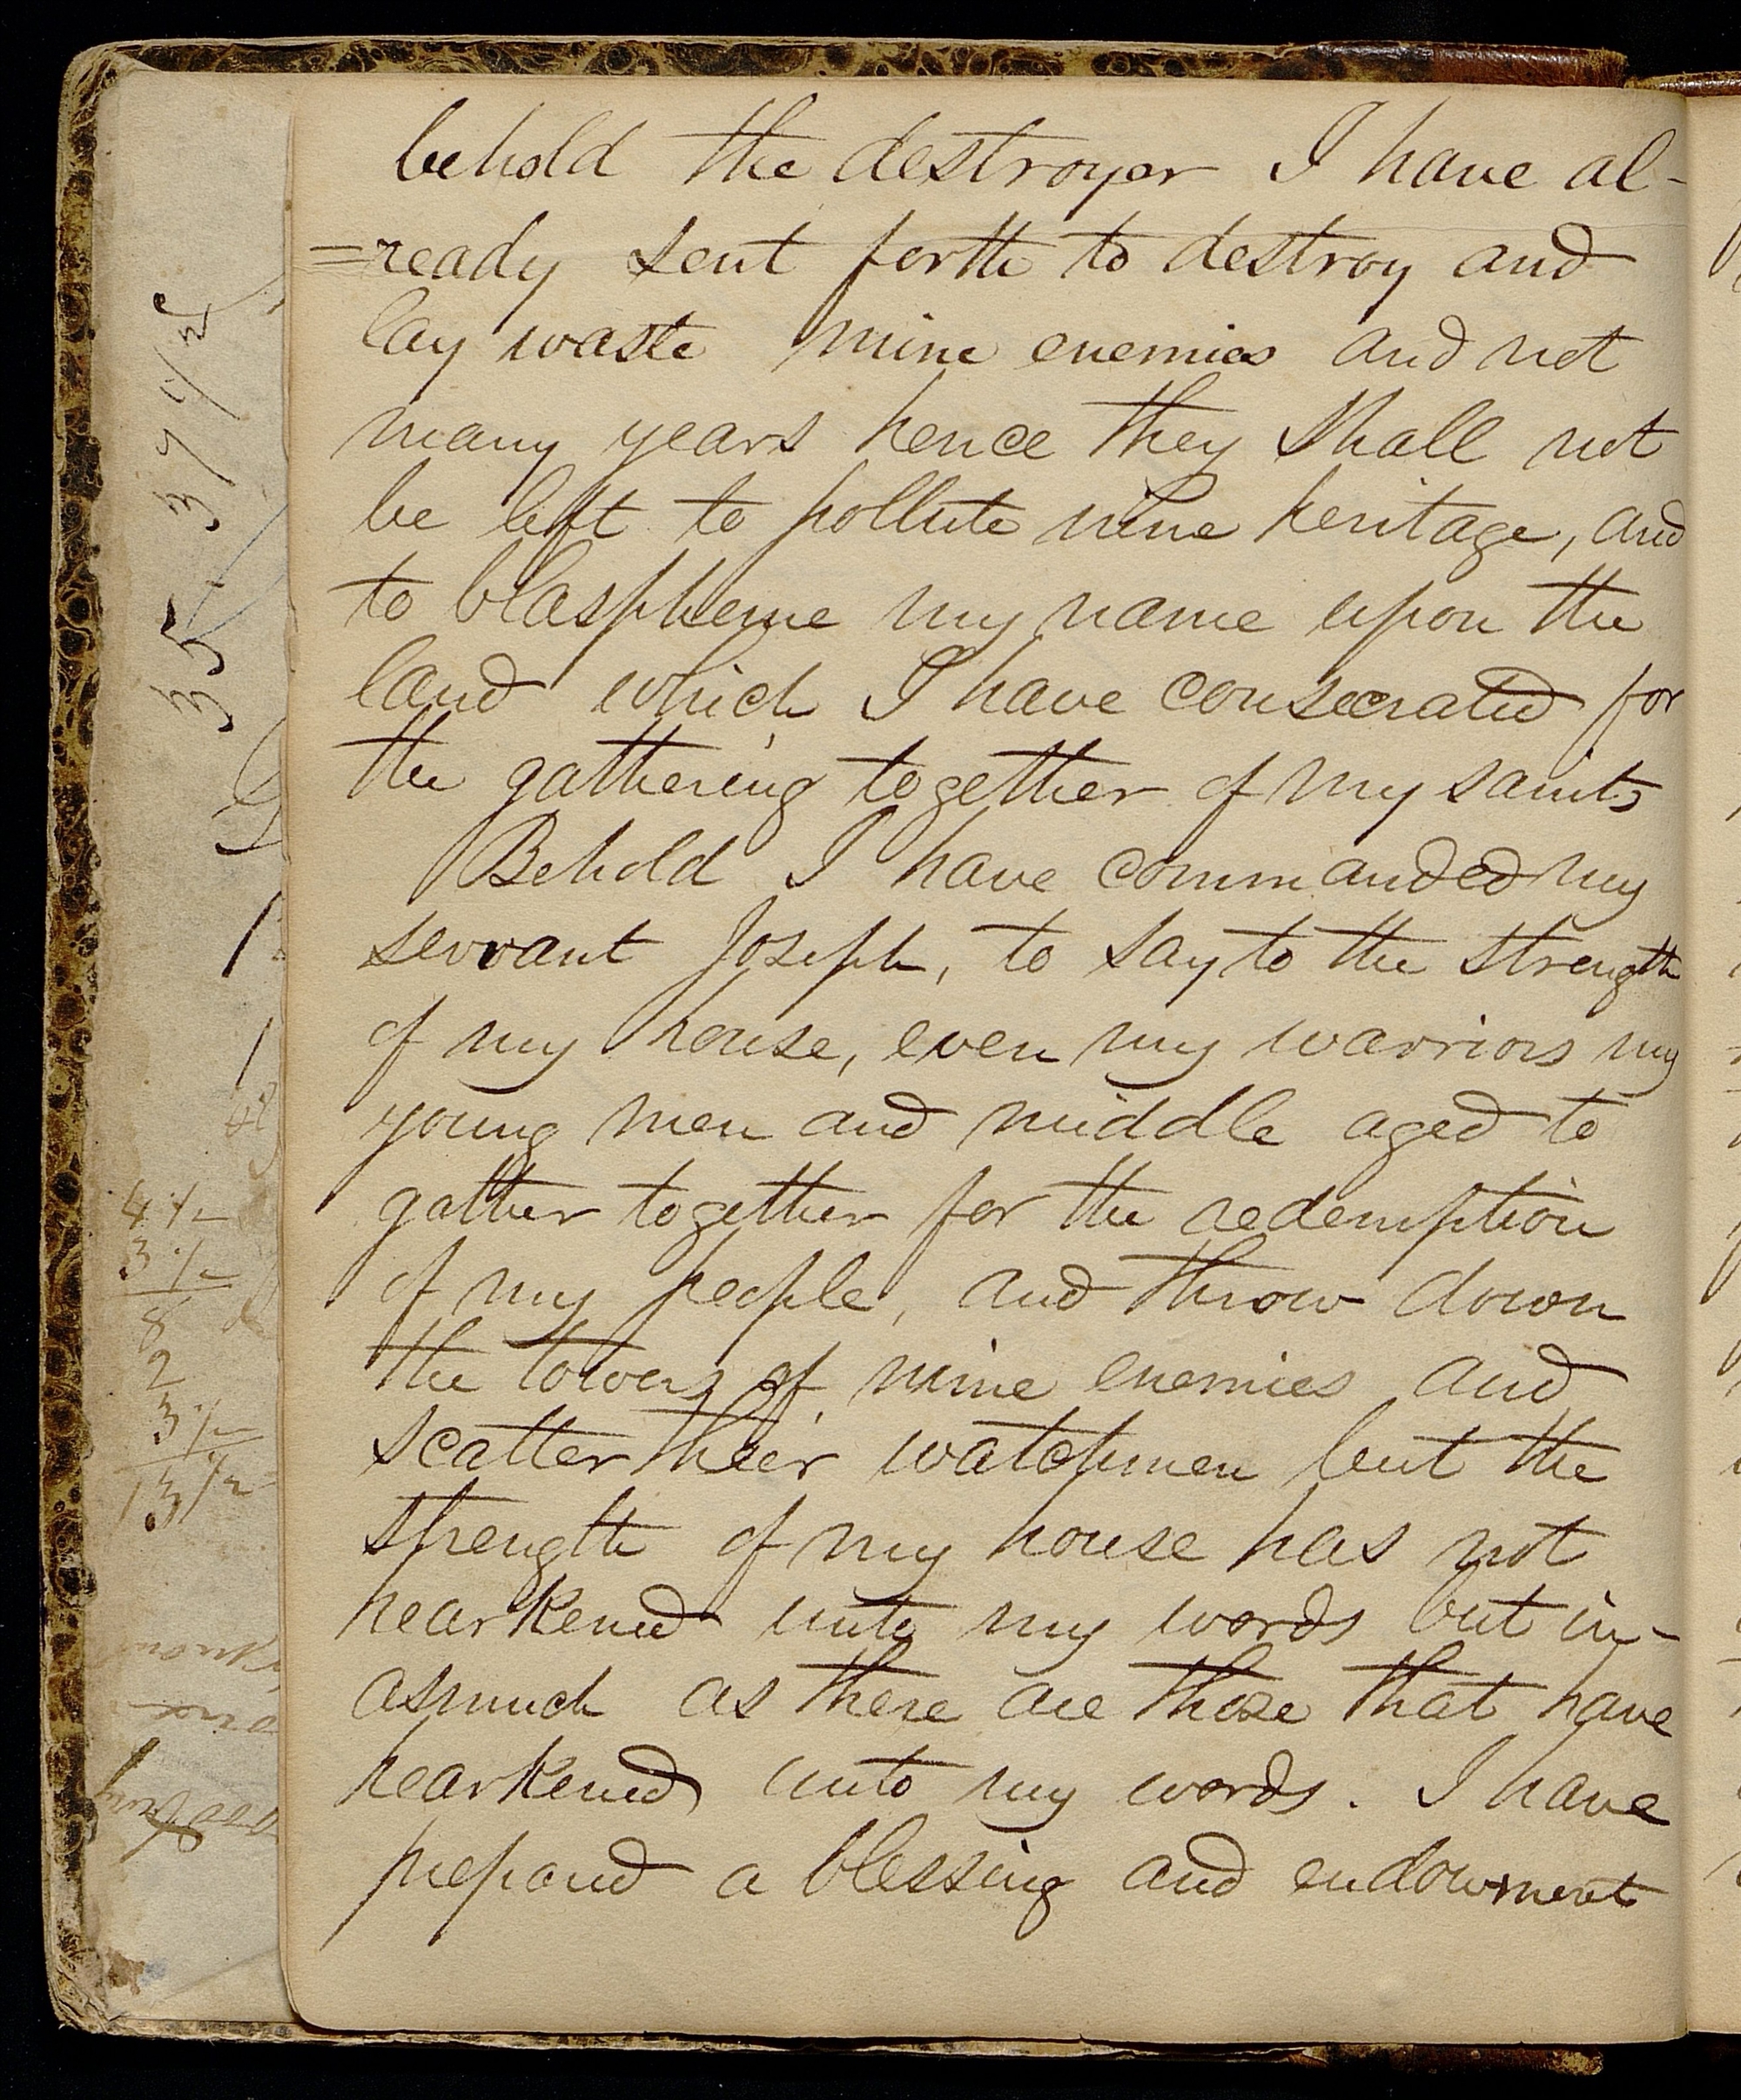 behold the destroyer I have al-
=ready sent forth to destroy and
lay waste mine enemies and not
many years hence they shall not
be left to pollute mine heritage, and
to blaspheme my name upon the
land which I have consecrated for
the gathering together of my saints
Behold I have commanded my
servant Joseph, to say to the strength
of my house, even my warriors my
young men and middle aged to
gather together for the redemption
of my people, and throw down
the towers of mine enemies and
scatter their watchmen but the
strength of my house has not
hearkened unto my words but in-
asmuch as there are those that have
hearkened unto my words. I have
prepared a blessing and endowment
37 1/2
35
4 1/2
3 1/2
8
2
3 1/2
13 1/2